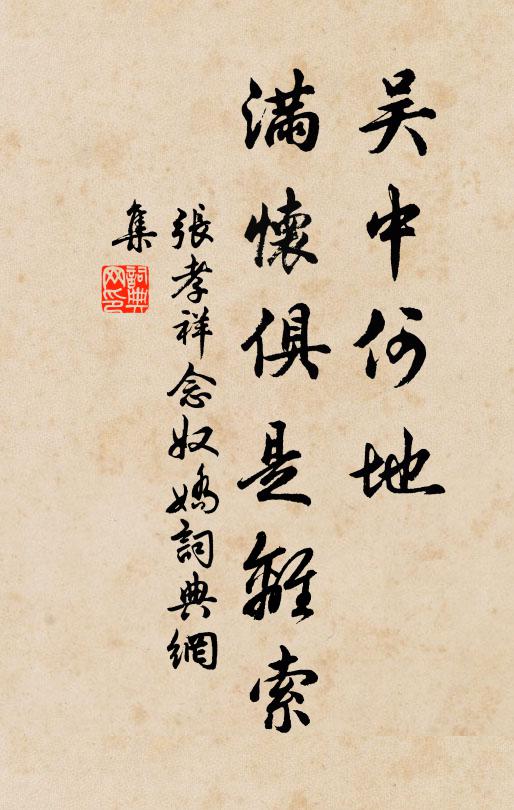 吴中何地
滿懷俱是離索
張孝祥念奴嬌詞典網
集
詞典网印